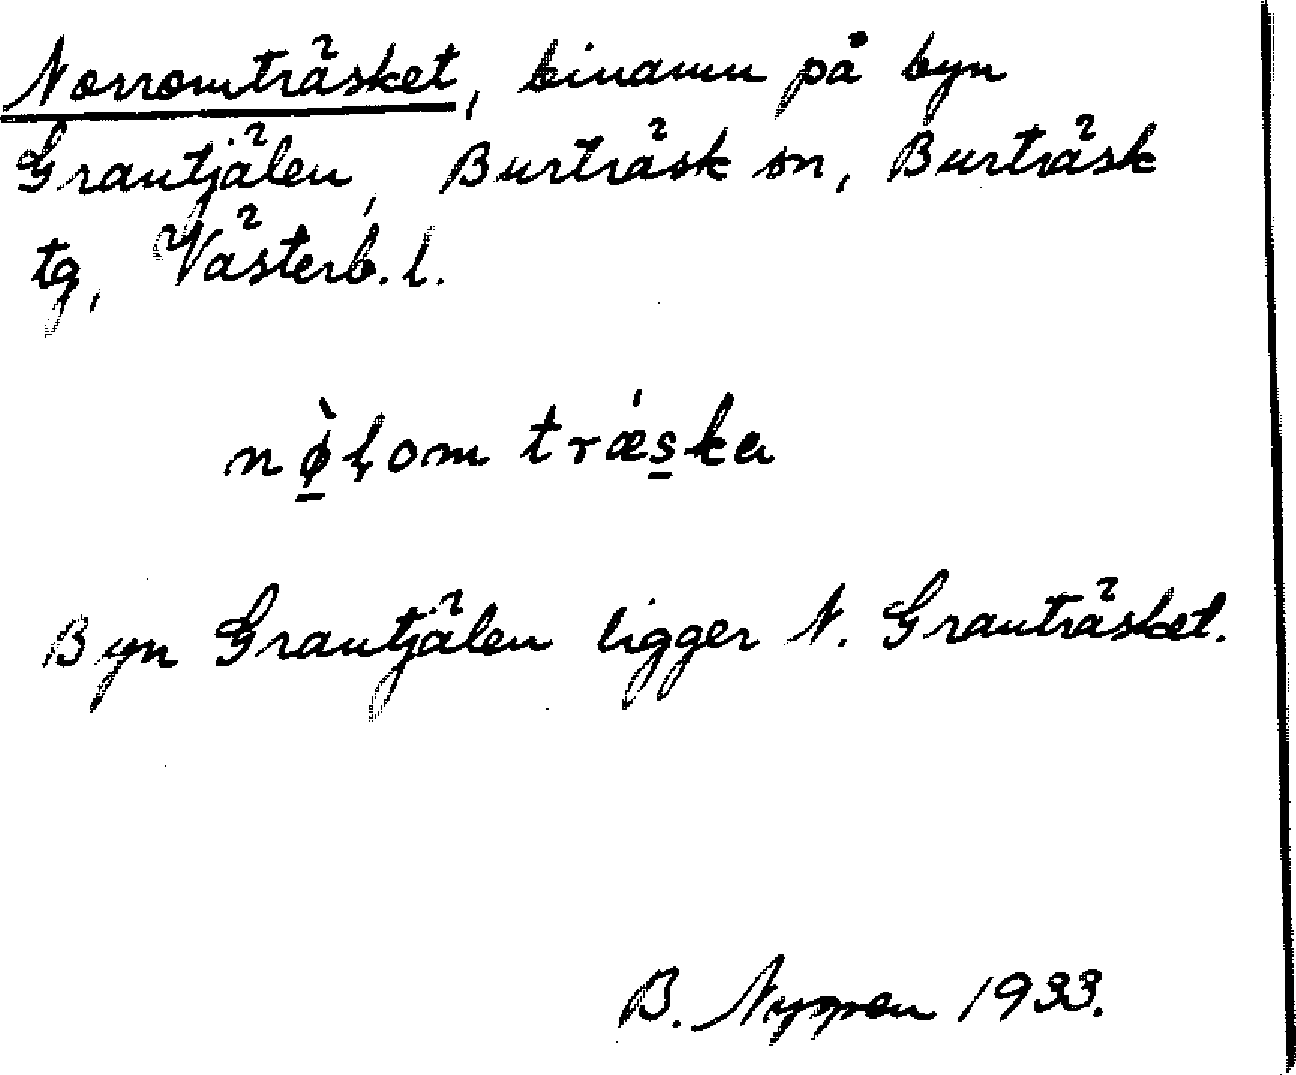 Norromträsket, binamn på byn
Grantjälen, Burträsk sn, Burträsk
tg, Västerb. l.
nø̱̀ḷom træ̀s̱ka
Byn Grantjälen ligger N. Granträsket.
B. Nyppen 1933.